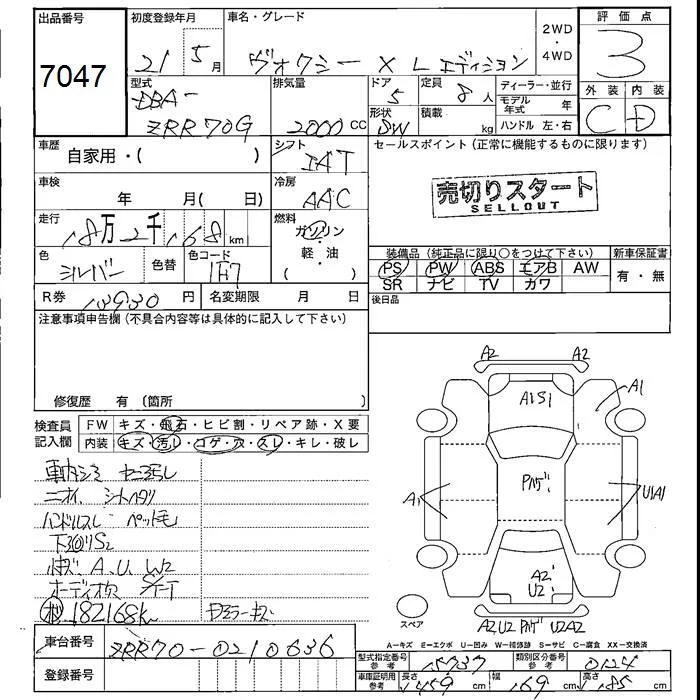 出品番号
7047
初度登録年月
21 5月
車名・グレード
ヴォクシー X Lエディション
2WD
・
4WD
評価点
3
外装 内装
C D
型式
DBA-
ZRR70G
排気量
2000 CC
ドア
5
形状
SW
定員
8人
積載
kg
ディーラー・並行
モデル年式 年
ハンドル 左・右
車歴
自家用・( )
シフト
IAT
車検
年 月( 日)
冷房
AAC
走行
18万2千168km
燃料
ガソリン
・
軽・油
( )
色
シルバー
色替
色コード
1F7
R券
13930円
名変期限 月 日
セールスポイント(正常に機能するものに限ります)
売切りスタート
SELLOUT
装備品(純正品に限り○をつけて下さい)
PS PW ABS エアB AW
SR ナビ TV カワ
新車保証書
有・無
後日品
注意事項申告欄(不具合内容等は具体的に記入して下さい)
修復歴 有(箇所
検査員
記入欄
FW キズ・飛石・ヒビ割・リペア跡・X要
内装 キズ・汚レ・コゲ・穴・スレ・キレ・破レ
ニオイ
ハンドルスレ ペット毛
下回りS2
A.U.W2
182168km
A2 A2
A1S1
A1
A1
U1A1
A2
U2
スペア
A2U2 U2A2
A-キズ E-エクボ U-凹み W-補修跡 S-サビ C-腐食 XX-交換済
車台番号
ZRR70-0210636
登録番号
型式指定番号
参考
15737
類別区分番号
参考
0124
車庫証明用
参考
長さ 459cm
幅 169cm
高さ 185cm